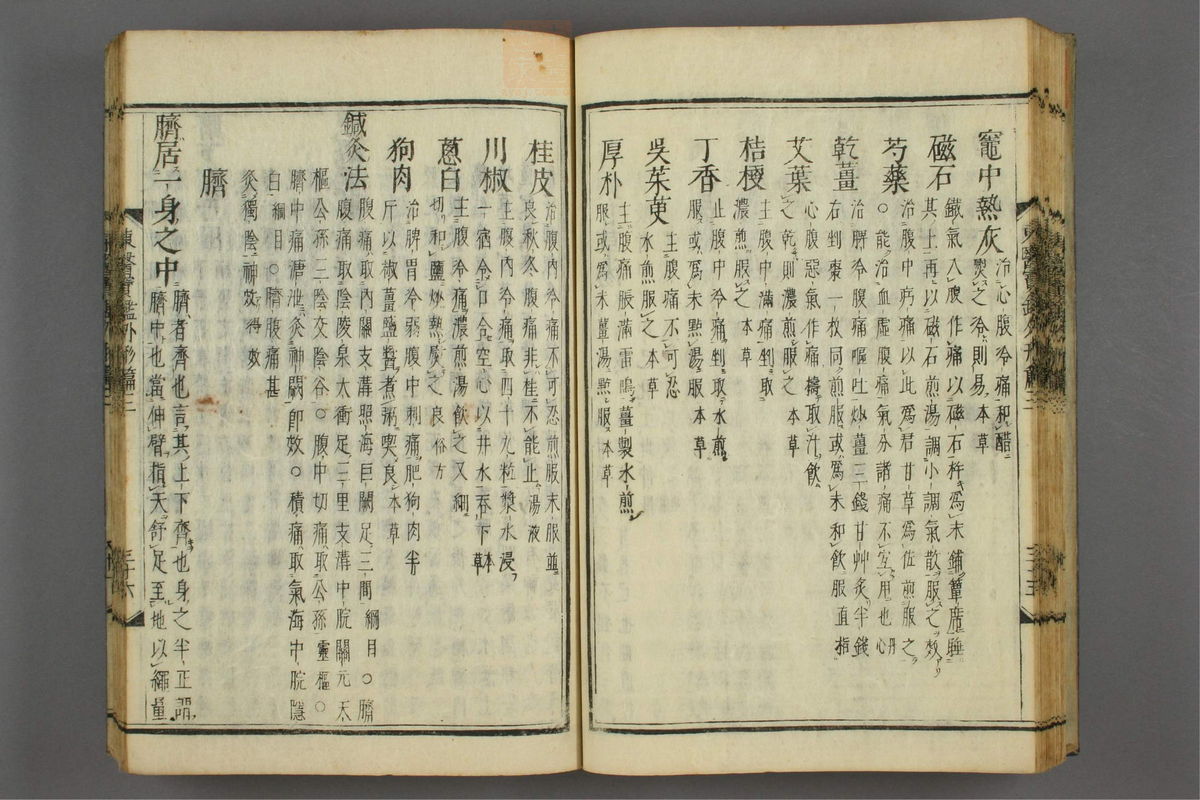 竈中熱灰 治心腹冷痛和醋
熨之冷則易 本草
磁石 鐵氣入腹作痛以磁石杵爲末鋪簟席睡
其上再以磁石煎湯調小調氣散服之效
芍藥 治腹中㽲痛以此爲君甘草爲佐煎服之
○能治血虛腹痛氣分諸痛不宜用也丹心
乾薑 治脾冷腹痛嘔吐炒薑三錢甘艸炙半錢
右剉棗一枚同煎服或爲末和飲服直指
艾葉 心腹惡氣作痛擣取汁飲
之乾則濃煎服之 本草
桔梗 主腹中滿痛剉取
濃煎服之 本草
丁香 止腹中冷痛剉取水煎
服或爲末點湯服 本草
吳茱萸 主腹痛不可忍
水煎服之 本草
厚朴 主腹痛脹滿雷鳴薑製水煎
服或爲末薑湯點服 本草
桂皮 治腹內冷痛不可忍煎服末服並
良秋冬腹痛非桂不能止 湯液
川椒 主腹內冷痛取四十九粒漿水浸
一宿令口合空心以井水吞下 本草
葱白 主腹冷痛濃煎湯飲之又細
切和鹽炒熱熨之良 俗方
狗肉 治脾胃冷弱腹中刺痛肥狗肉半
斤以椒薑鹽醬煮粥喫良 本草
鍼灸法 腹痛取內關支溝照海巨闕足三里 綱目○臍
腹痛取陰陵泉太衝足三里支溝中脘關元天
樞公孫三陰交陰谷○腹中切痛取公孫靈樞○
臍中痛溏泄灸神闕卽效○積痛取氣海中脘隱
白 綱目○臍腹痛甚
灸獨陰神效 得效
臍
臍居一身之中 臍者齊也言其上下齊也身之半正謂
臍中也當伸臂指天舒足至地以繩量
東醫寶鑑外形篇三
三十六